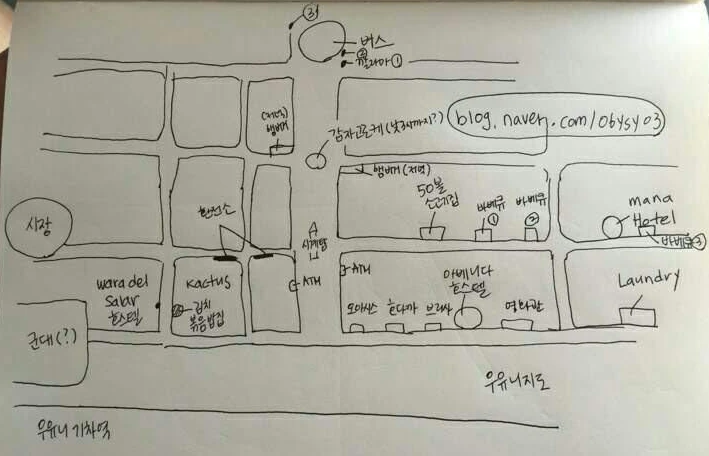 ③
버스
②
쥴리아 ①
(저녁)
햄버거
감자고로케(낮3시까지?)
blog.naver.com/obysy03
햄버거(저녁)
50볼
스테이크집
바베큐
①
바베큐
②
mana
Hotel
바베큐③
시장
환전소
시계탑
ATM
ATM
wara del
Salar
호스텔
Kactus
김치
볶음밥집
아베니다
호스텔
Laundry
오아시스
호다까
브리사
영화관
군대(?)
우유니지도
우유니 기차역